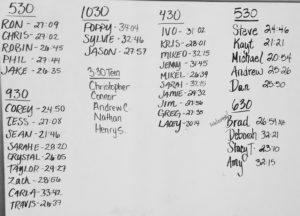 530
RON - 27:09
CHRIS - 27:02
ROBIN - 26:45
PHIL - 27:44
JAKE - 26:35
930
COREY - 24:50
TESS - 27:08
SEAN - 21:46
SARAHE - 28:20
CRYSTAL - 26:05
TAYLOR - 29:27
Zach - 28:56
CARLA - 33:42
TRAVIS - 26:37
1030
POPPY - 34:04
SYLVIE - 32:46
JASON - 27:57
530 Teen
Christopher
Connor
Andrew C.
Nathan
Henry S.
430
IVO - 31:02
KRIS - 28:01
MIKEO - 32:15
JENNY - 31:45
MIKEL - 26:39
SARAH - 32:25
JAMIE - 29:32
JIM - 27:56
GREG - 27:35
LACEY - 30:19
530
Steve 24:46
Kayt 21:21
Michael 20:54
Andrew 25:26
Dan 25:50
630
Brad 26:59
Deborah 32:21
Stacy T. 23:70
Amy 32:15